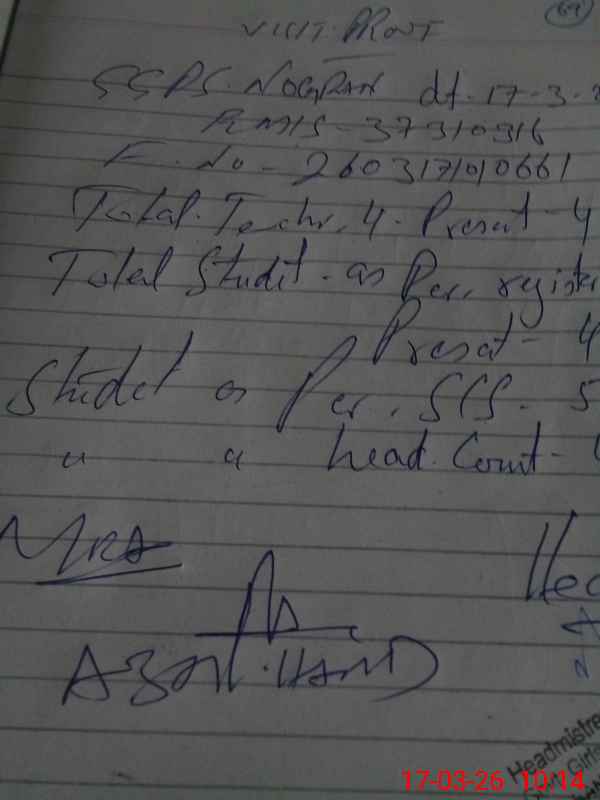 69
VISIT PROOF
GGPS. NOGRAN dt. 17-3-
EMIS - 37310316
F. No - 26031701 0661
Total. Teachr. 4. Presat - 4
Total Studet. as Per. registe
Presat - 4
Studet as Per. SIS. 5
" " head. Count -
MRA
HAMID
Hea
Headmistre
Girls
17-03-26 10:14